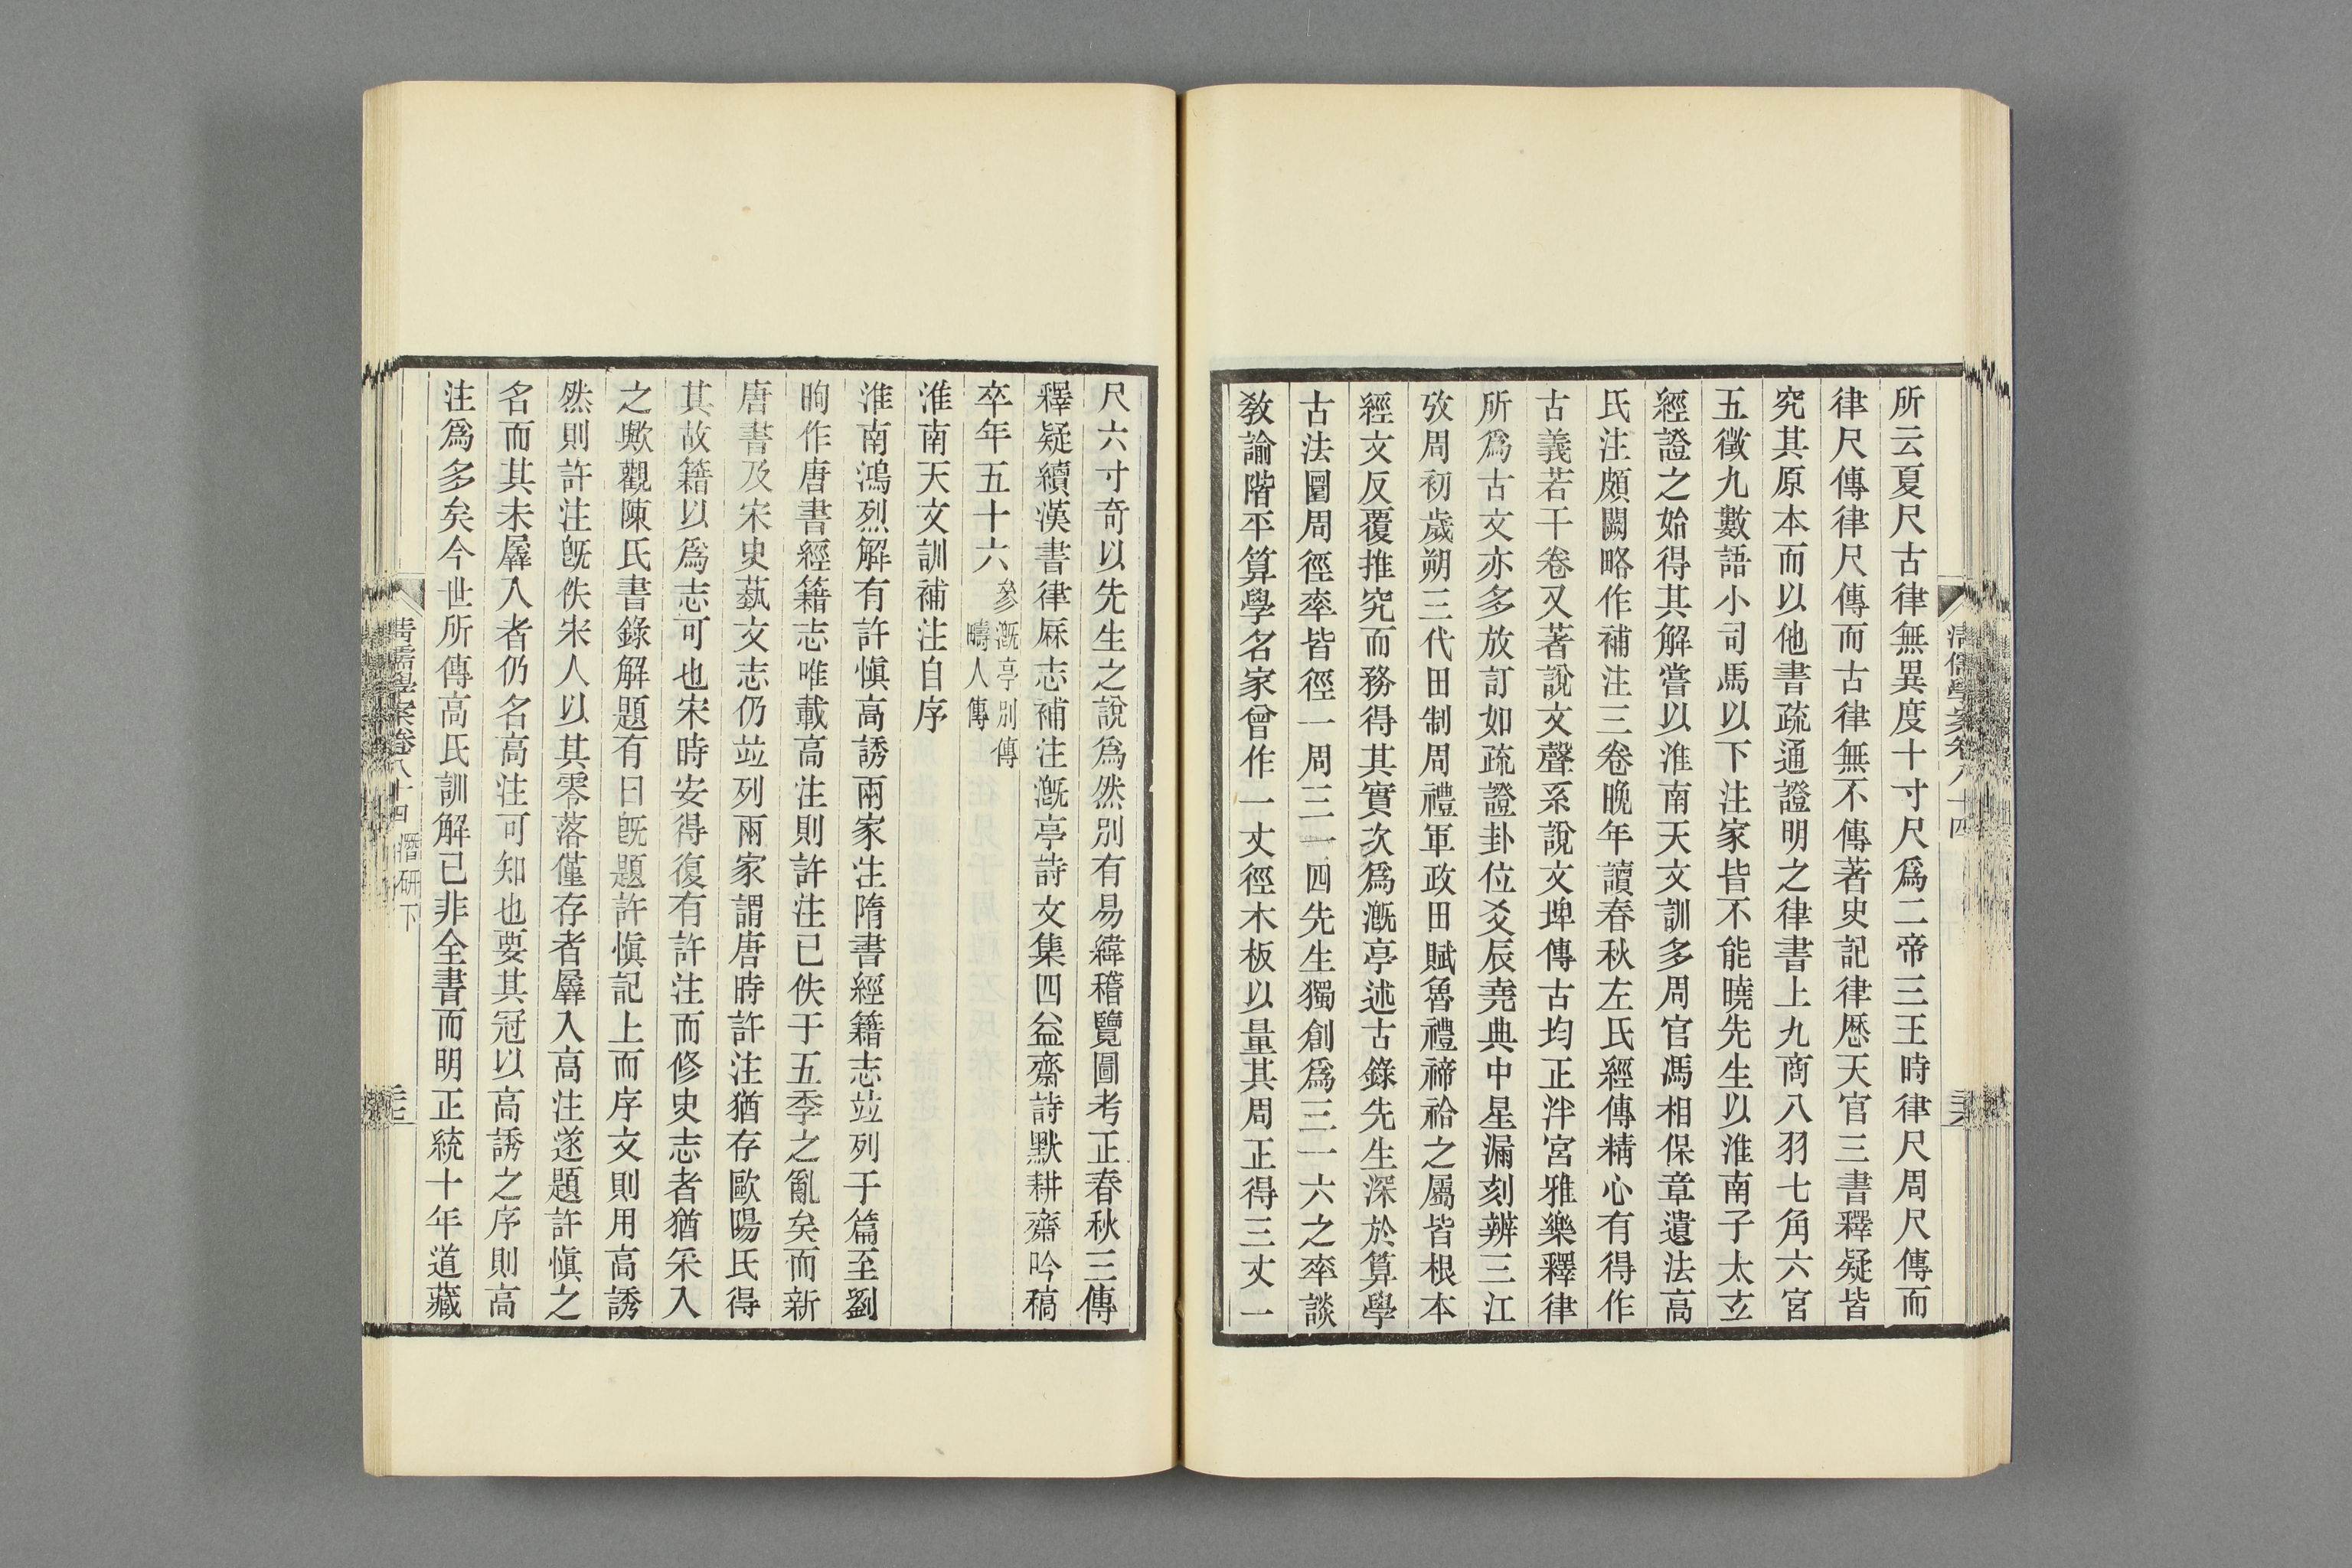 清儒學案卷八十四
所云夏尺古律無異度十寸尺爲二帝三王時律尺周尺傳而
律尺傳律尺傳而古律無不傳著史記律厯天官三書釋疑皆
究其原本而以他書疏通證明之律書上九商八羽七角六宮
五徵九數語小司馬以下注家皆不能曉先生以淮南子太玄
經證之始得其解嘗以淮南天文訓多周官馮相保章遺法高
氏注頗闕略作補注三卷晚年讀春秋左氏經傳精心有得作
古義若干卷又著說文聲系說文埤傳古均正泮宮雅樂釋律
所爲古文亦多放訂如疏證卦位爻辰堯典中星漏刻辨三江
攷周初歲朔三代田制周禮軍政田賦魯禮禘祫之屬皆根本
經文反覆推究而務得其實次爲漑亭述古錄先生深於算學
古法圜周徑率皆徑一周三一四先生獨創爲三一六之率談
敎諭階平算學名家曾作一丈徑木板以量其周正得三丈一
尺六寸奇以先生之說爲然別有易緯稽覽圖考正春秋三傳
釋疑續漢書律厤志補注漑亭詩文集四益齋詩默耕齋吟稿
卒年五十六 參漑亭別傳疇人傳
淮南天文訓補注自序
淮南鴻烈解有許愼高誘兩家注隋書經籍志竝列于篇至劉
昫作唐書經籍志唯載高注則許注已佚于五季之亂矣而新
唐書及宋史藝文志仍竝列兩家謂唐時許注猶存歐陽氏得
其故籍以爲志可也宋時安得復有許注而修史志者猶采入
之歟觀陳氏書錄解題有曰旣題許愼記上而序文則用高誘
然則許注旣佚宋人以其零落僅存者羼入高注遂題許愼之
名而其未羼入者仍名高注可知也要其冠以高誘之序則高
注爲多矣今世所傳高氏訓解已非全書而明正統十年道藏
清儒學案卷八十四 潛研下